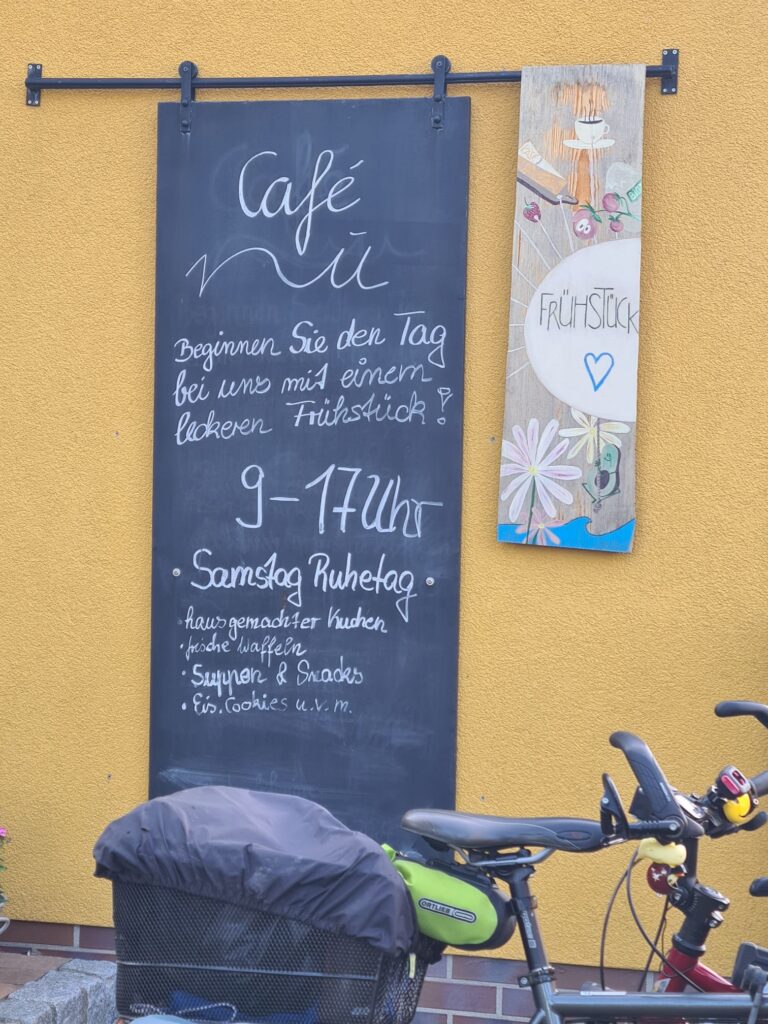 Café
nü
Beginnen Sie den Tag
bei uns mit einem
leckeren Frühstück!
9-17 Uhr
Samstag Ruhetag
· hausgemachter Kuchen
· frische Waffeln
· Suppen & Snacks
· Eis, Cookies u.v.m.
FRÜHSTÜCK
ORTLIEB